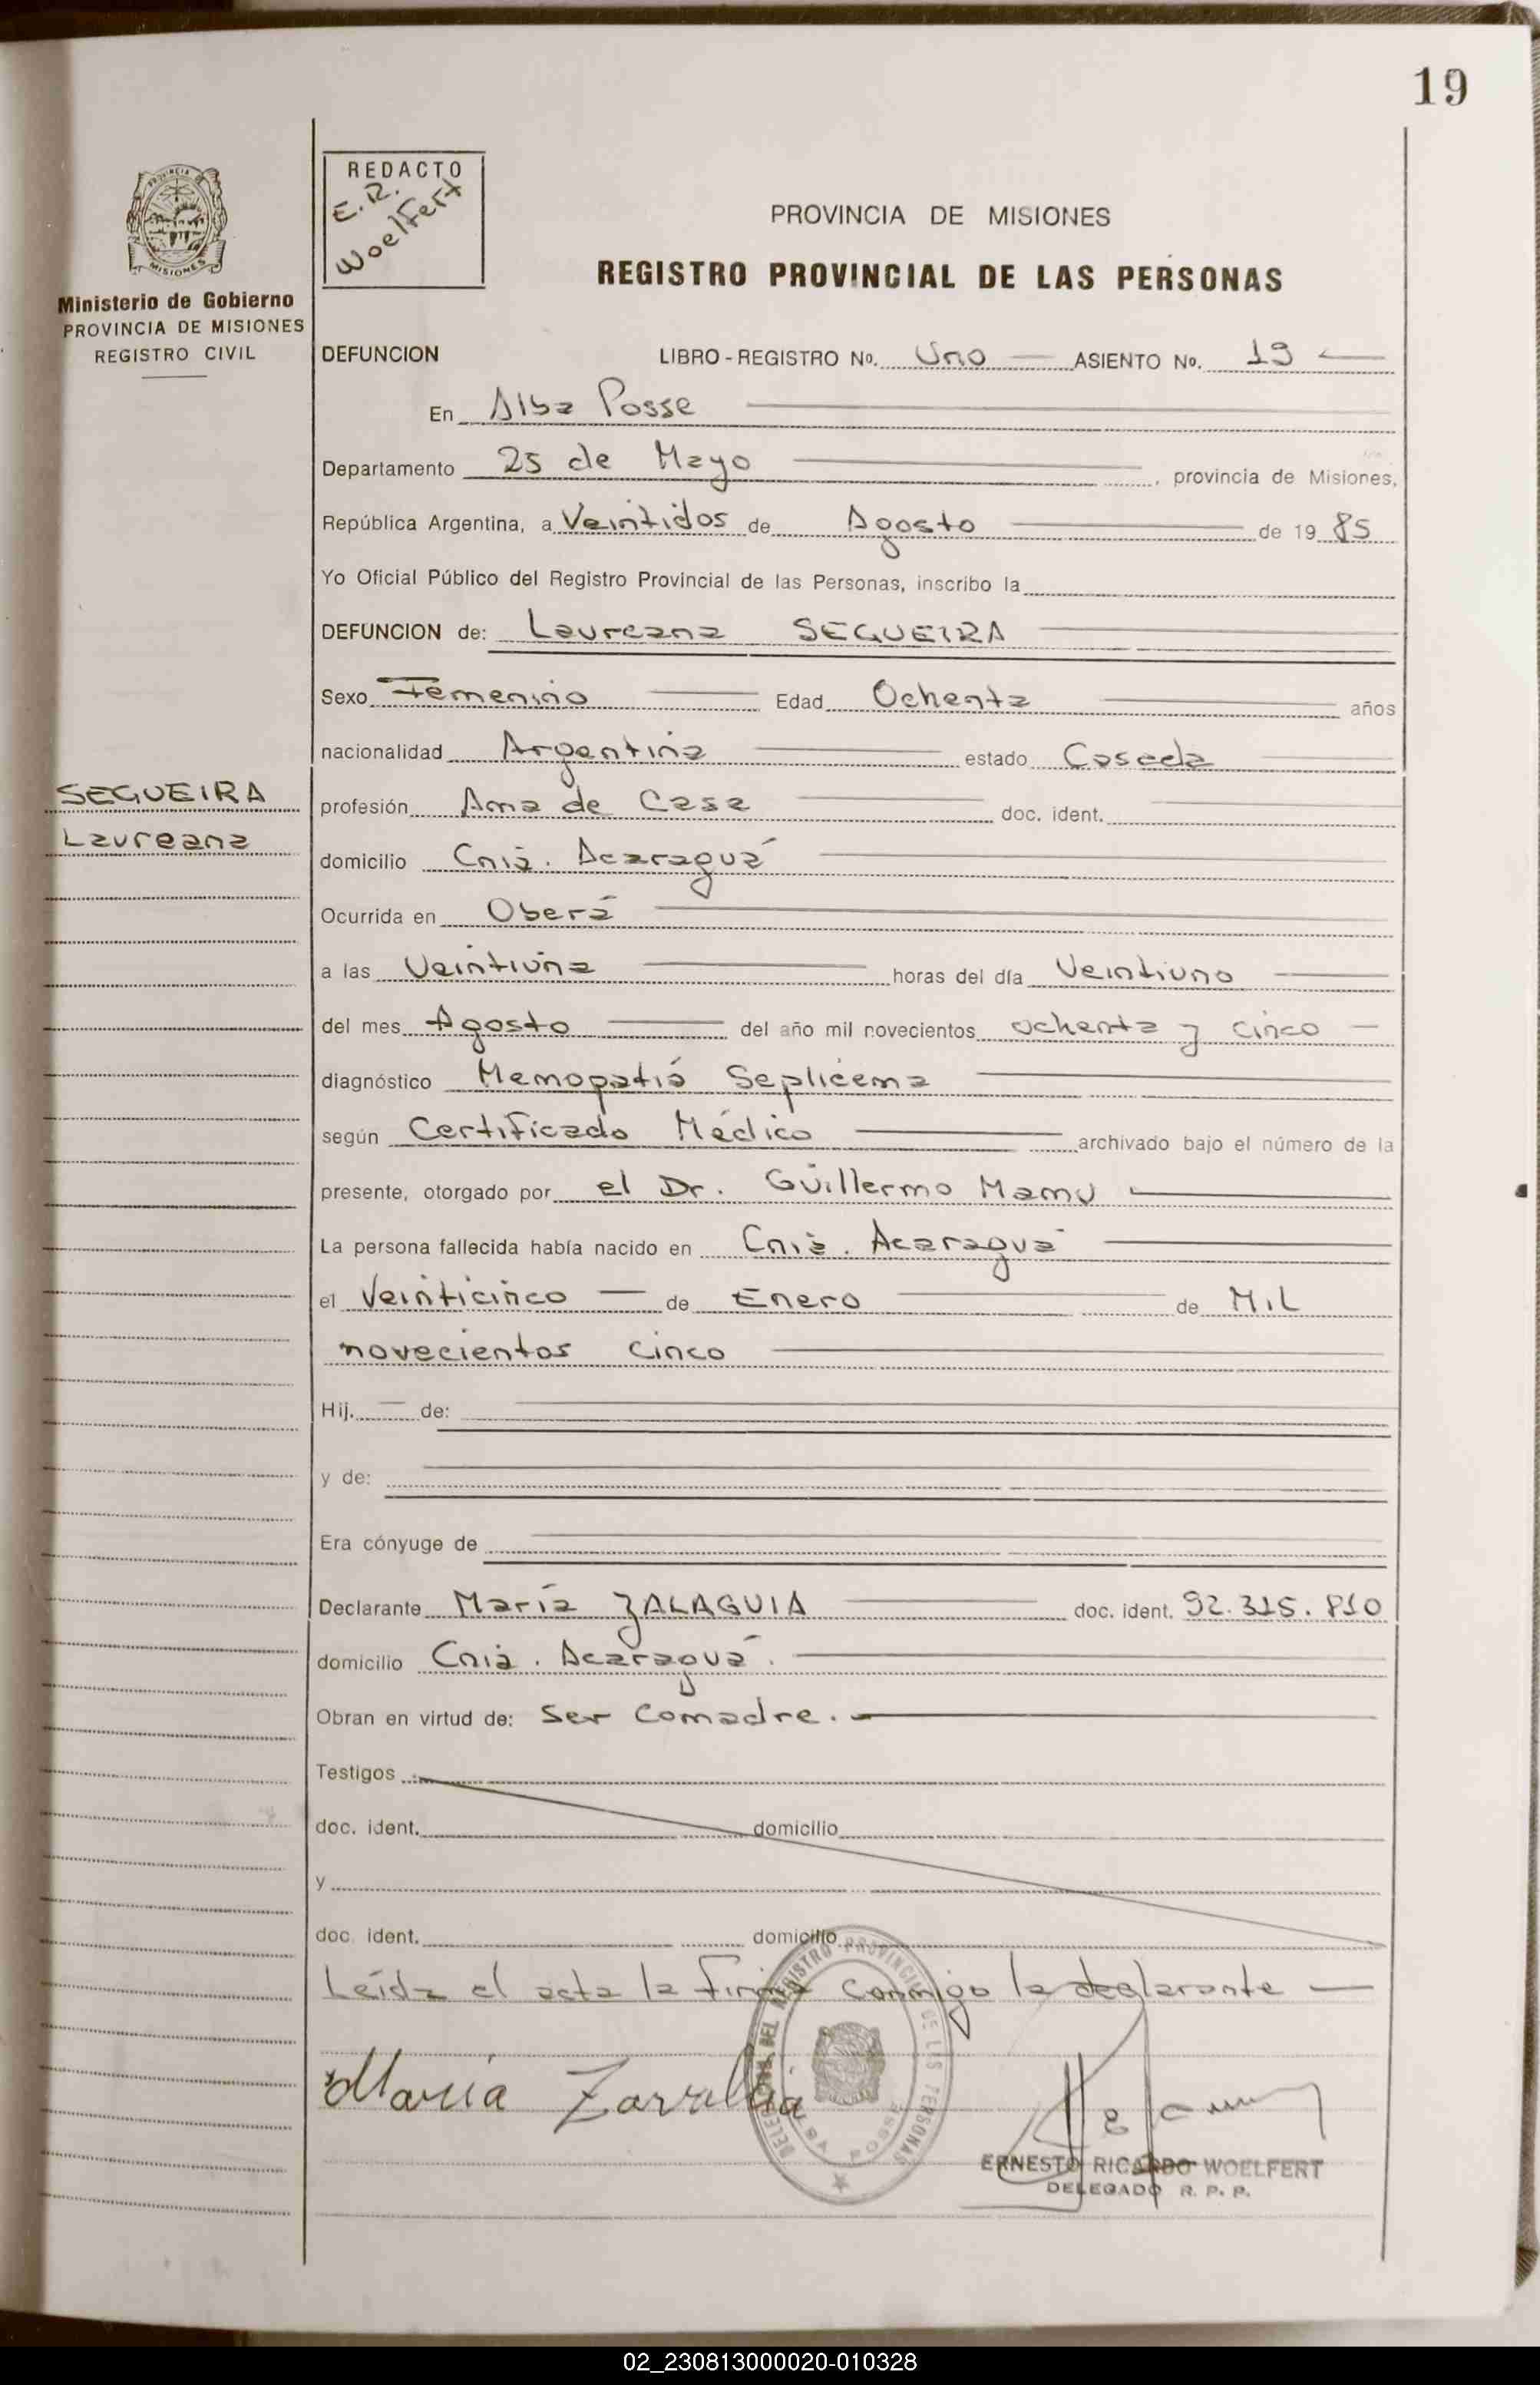 19
REDACTO
E. R.
Woelfert
MISIONES
Ministerio de Gobierno
PROVINCIA DE MISIONES
REGISTRO CIVIL
PROVINCIA DE MISIONES
REGISTRO PROVINCIAL DE LAS PERSONAS
DEFUNCION LIBRO - REGISTRO Nº. Uno ASIENTO Nº. 19
En Alba Posse
Departamento 25 de Mayo, provincia de Misiones,
República Argentina, a Veintidos de Agosto de 19 85
Yo Oficial Público del Registro Provincial de las Personas, inscribo la
DEFUNCION de: Laureana SEGUEIRA
Sexo Femenino Edad Ochenta años
nacionalidad Argentina estado Casada
SEGUEIRA
Laureana
profesión Ama de Casa doc. ident.
domicilio Cnia. Acaraguá
Ocurrida en Oberá
a las Veintiuna horas del día Veintiuno
del mes Agosto del año mil novecientos ochenta y cinco
diagnóstico Hemopatiá Seplicema
según Certificado Médico archivado bajo el número de la
presente, otorgado por el Dr. Guillermo Mamu
La persona fallecida había nacido en Cnia. Acaraguá
el Veinticinco de Enero de Mil
novecientos cinco
Hij. de:
y de:
Era cónyuge de
Declarante María ZALAGUIA doc. ident. 92.315.810
domicilio Cnia. Acaraguá.
Obran en virtud de: Ser Comadre.
Testigos
doc. ident. domicilio
y
doc. ident. domicilio
Leída el acta la firma conmigo la declarante
DEL REGISTRO PROVINCIAL DE LAS PERSONAS
ALBA POSSE
María
ERNESTO RICARDO WOELFERT
DELEGADO R. P. P.
02_230813000020-010328